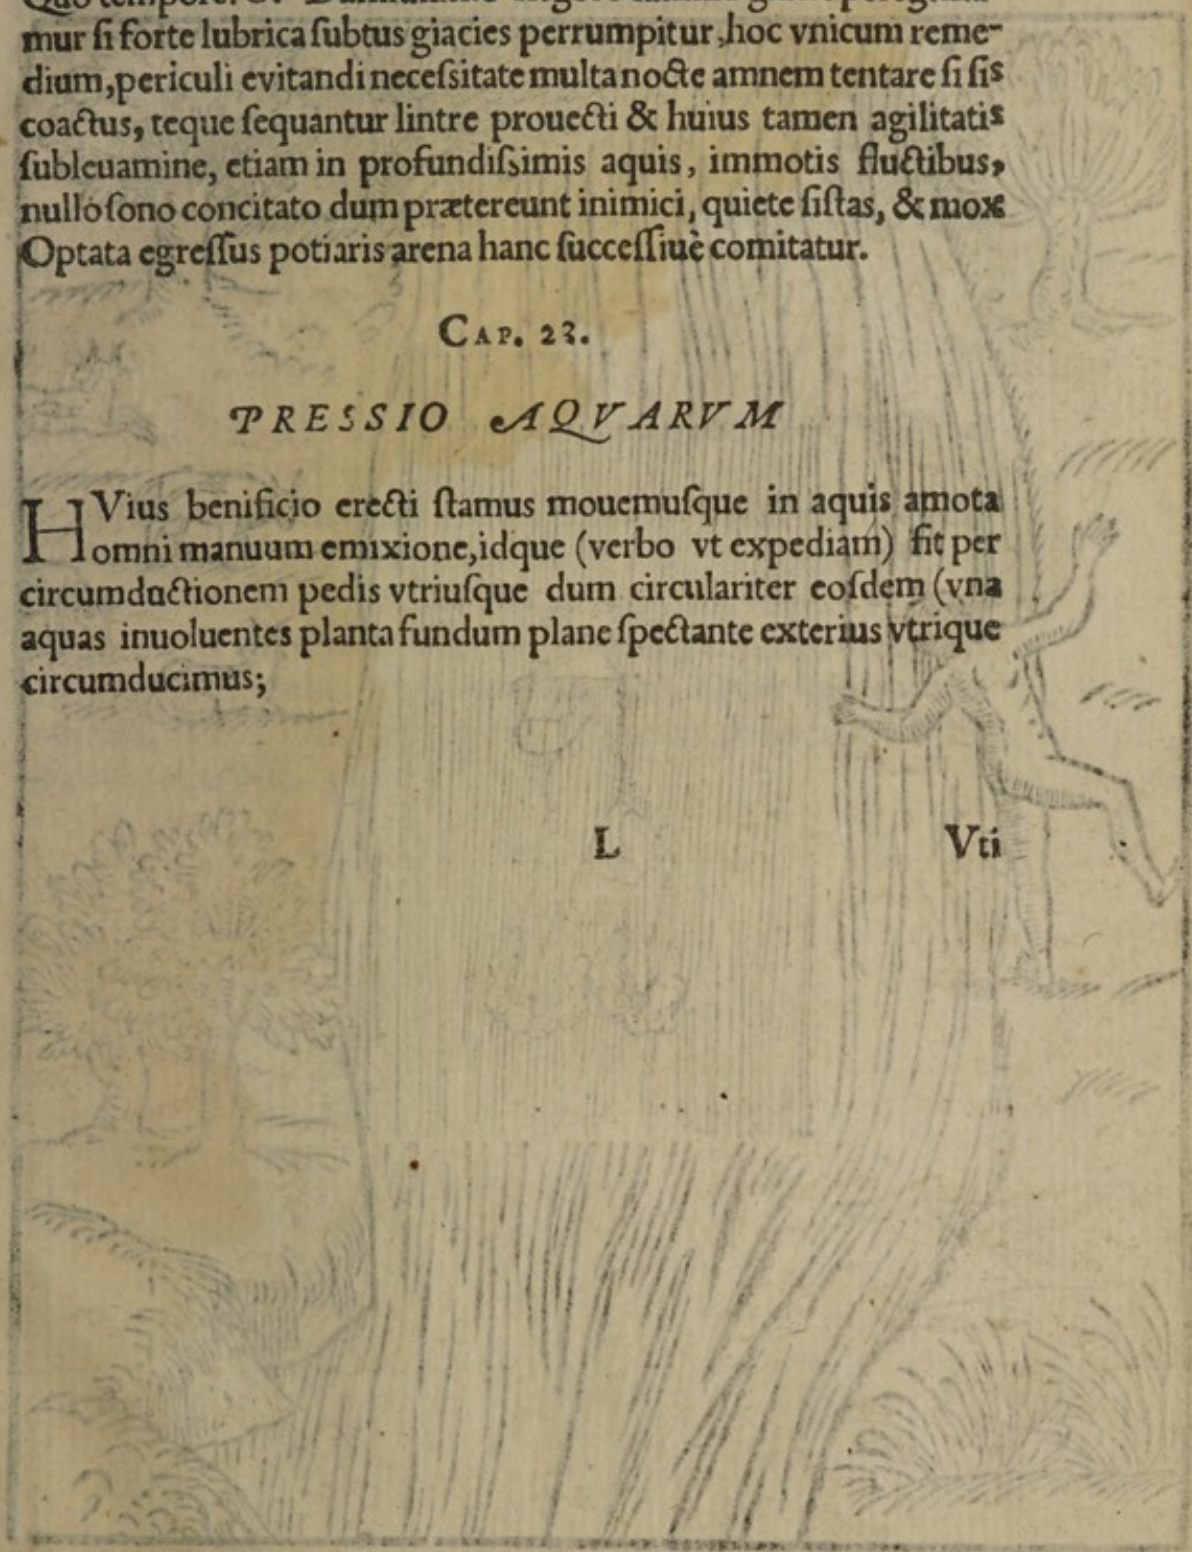 mur ſi forte lubrica ſubtus giacies perrumpitur, hoc vnicum reme-
dium, periculi evitandi neceſsitate multa nocte amnem tentare ſi ſis
coactus, teque ſequantur lintre prouecti & huius tamen agilitatis
ſubleuamine, etiam in profundiſsimis aquis, immotis fluctibus,
nullo ſono concitato dum prætereunt inimici, quiete ſiſtas, & mox
Optata egreſſus potiaris arena hanc ſucceſſiuè comitatur.
CAP. 23.
PRESSIO AQVARVM
HVius benificio erecti ſtamus mouemuſque in aquis amota
omni manuum emixione, idque (verbo vt expediam) fit per
circumductionem pedis vtriuſque dum circulariter eoſdem (vna
aquas inuoluentes planta fundum plane ſpectante exterius vtrique
circumducimus;
L Vti